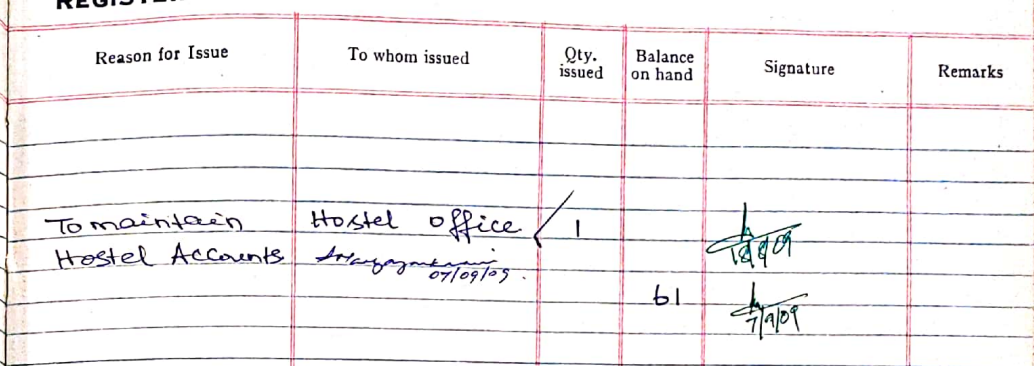 Reason for Issue To whom issued Qty. issued Balance on hand Signature Remarks
To maintain Hostel office 1
Hostel Accounts 07/09/09.
61 7/9/09